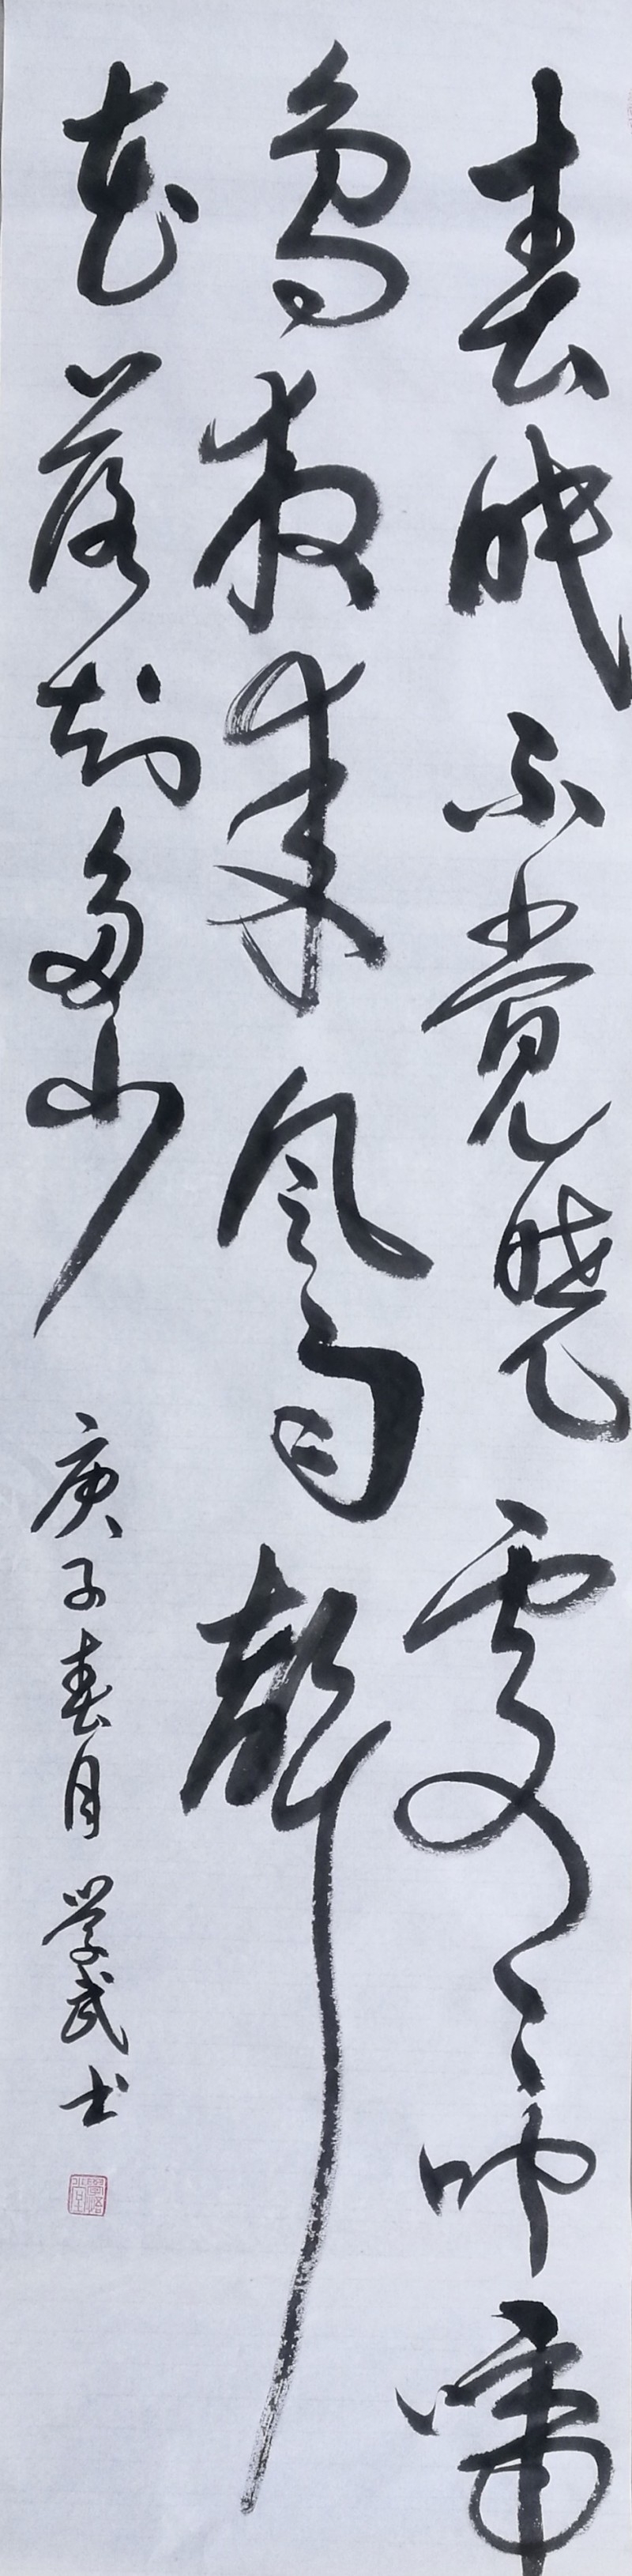 春眠不觉晓处々闻啼
鸟夜来风雨声
花落知多少 庚子春月 学武书